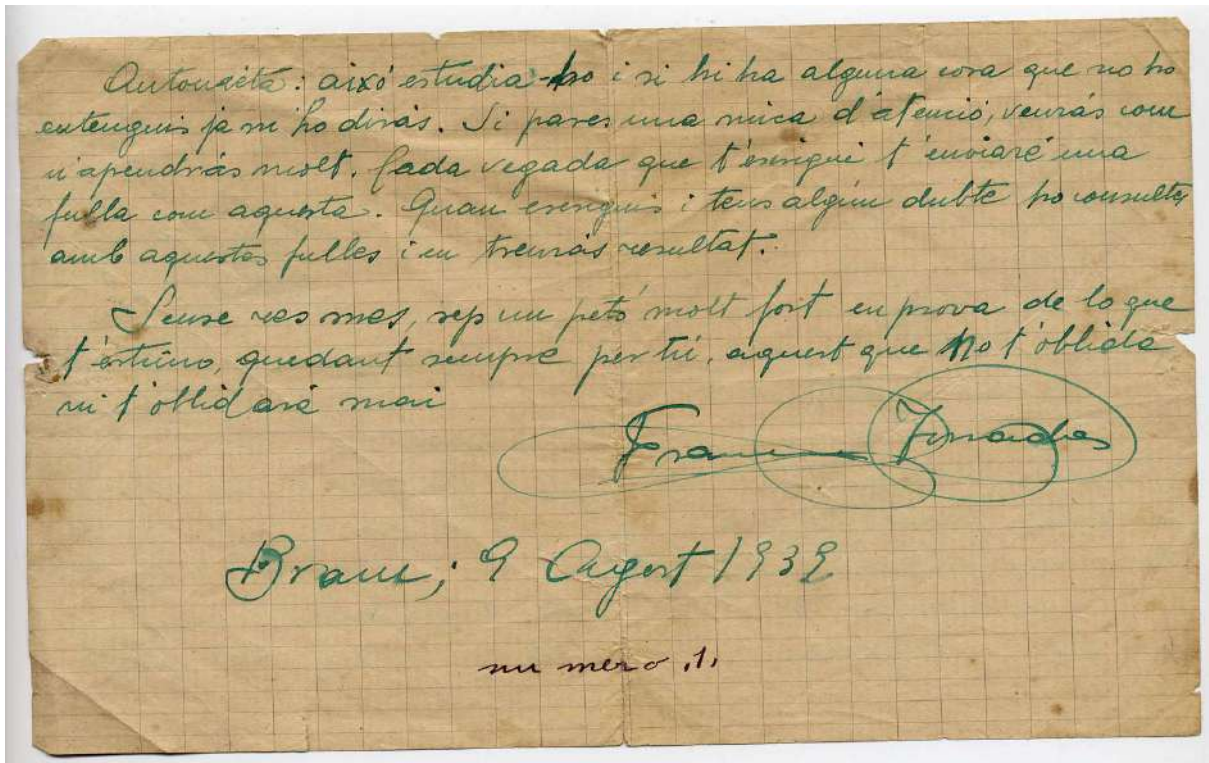 Antonieta: aixó estudia-ho i si hi ha alguna cosa que no ho
entenguis ja m'ho dirás. Si pares una mica d'atenció, veurás com
n'apendrás molt. Cada vegada que t'escrigui t'enviaré una
fulla com aquesta. Quan escriguis i tens algún dubte ho consultes
amb aquestes fulles i en treurás resultat.
Sense res mes, rep un petó molt fort en prova de lo que
t'estimo, quedant sempre per tú, aquest que no t'oblida
ni t'oblidaré mai
Bram; 9 Agost 1939
numero .1.